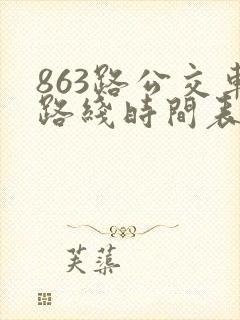 863路公交車
路綫時間表
芙蕖